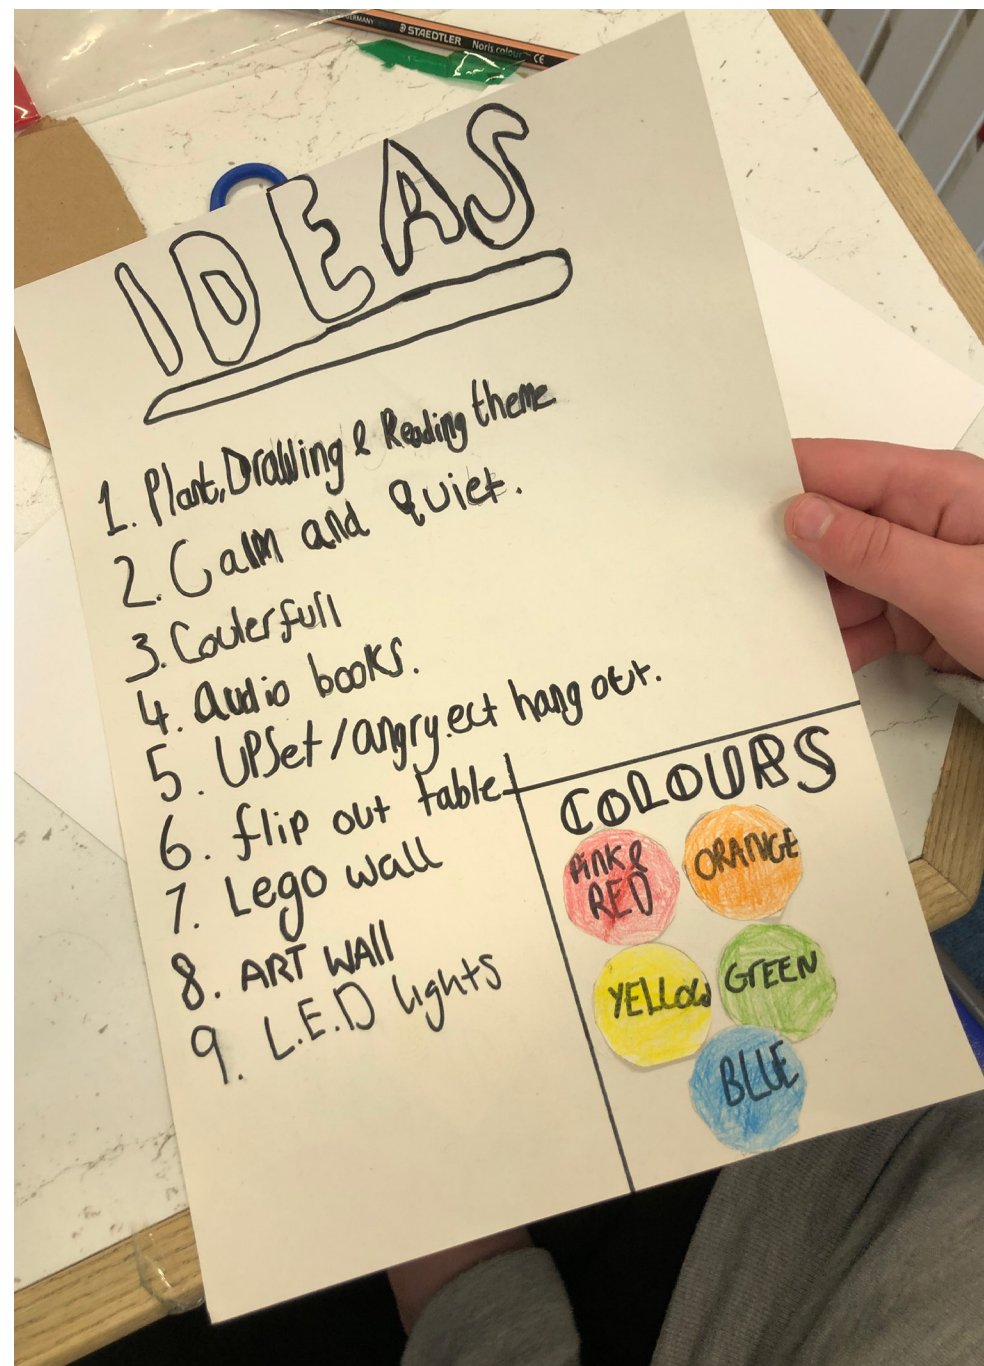 GERMANY
STAEDTLER Noris colour CE
IDEAS
1. Plant, Drawing & Reading theme
2. Calm and quiet.
3. Coulerfull
4. audio books.
5. UPSet/angry.ect hang out.
6. flip out table
7. Lego wall
8. ART WAll
9. L.E.D lights
COLOURS
PINK &
RED
ORANGE
YELLOW
GREEN
BLUE